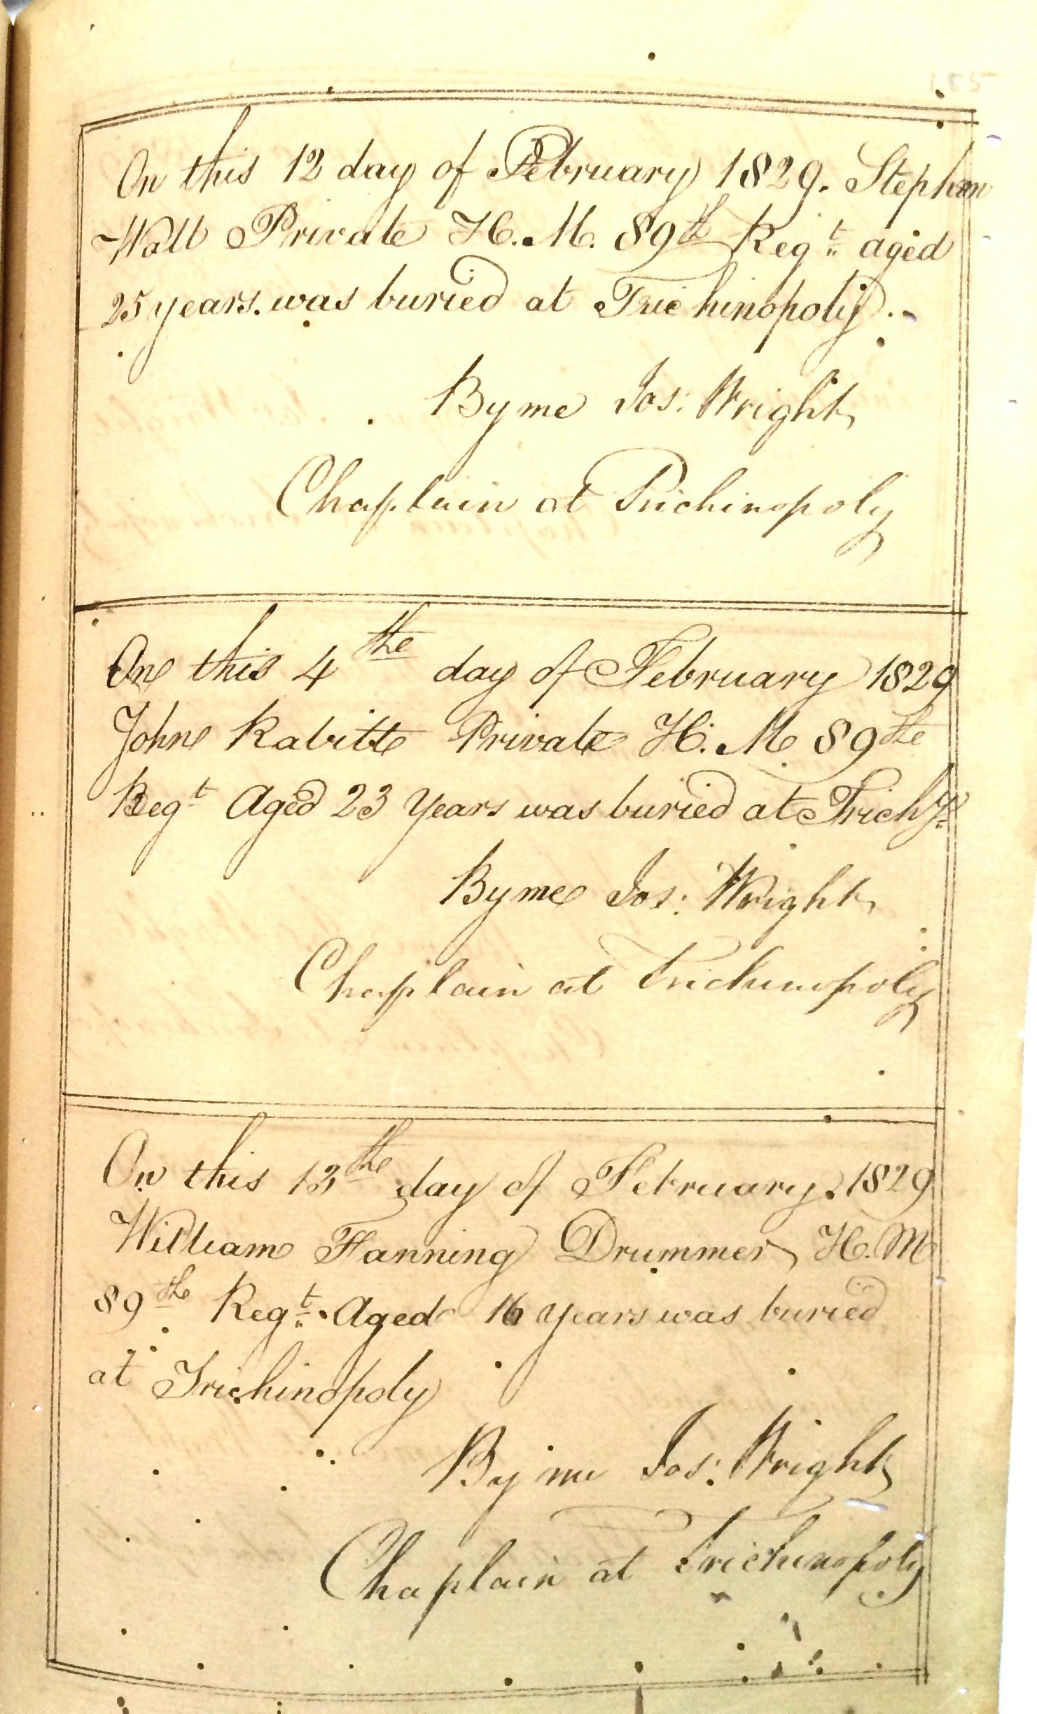 On this 12 day of February 1829. Stephen
Wall Private H. M. 89th Regt aged
25 years. was buried at Trichinopoly.
By me Jos: Wright
Chaplain at Trichinopoly
On this 4the day of February 1829
John Rabitte Private H. M. 89the
Regt Aged 23 years was buried at Trichy
By me Jos: Wright
Chaplain at Trichinopoly
On this 13the day of February. 1829
William Fanning Drummer H. M
89the Regt. Aged 16 years was buried
at Trichinopoly
By me Jos: Wright
Chaplain at Trichinopoly